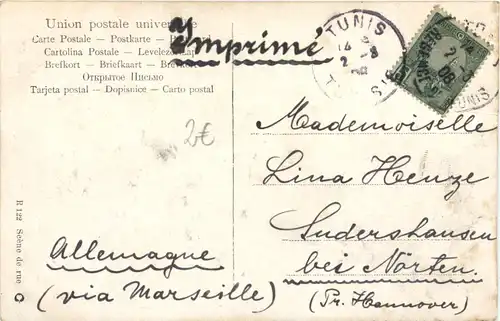 Union postale universelle
Carte Postale — Postkarte —
Cartolina Postale — Levelező-Lap
Brefkort — Briefkaart —
Открытое Письмо
Tarjeta postal — Dopisnice — Carto postal
Imprimé
TUNIS
TUNIS
2€
Mademoiselle
Lina Henze
Sudershausen
bei Nörten.
(Pr. Hannover)
Allemagne
(via Marseille)
R 122 Scène de rue